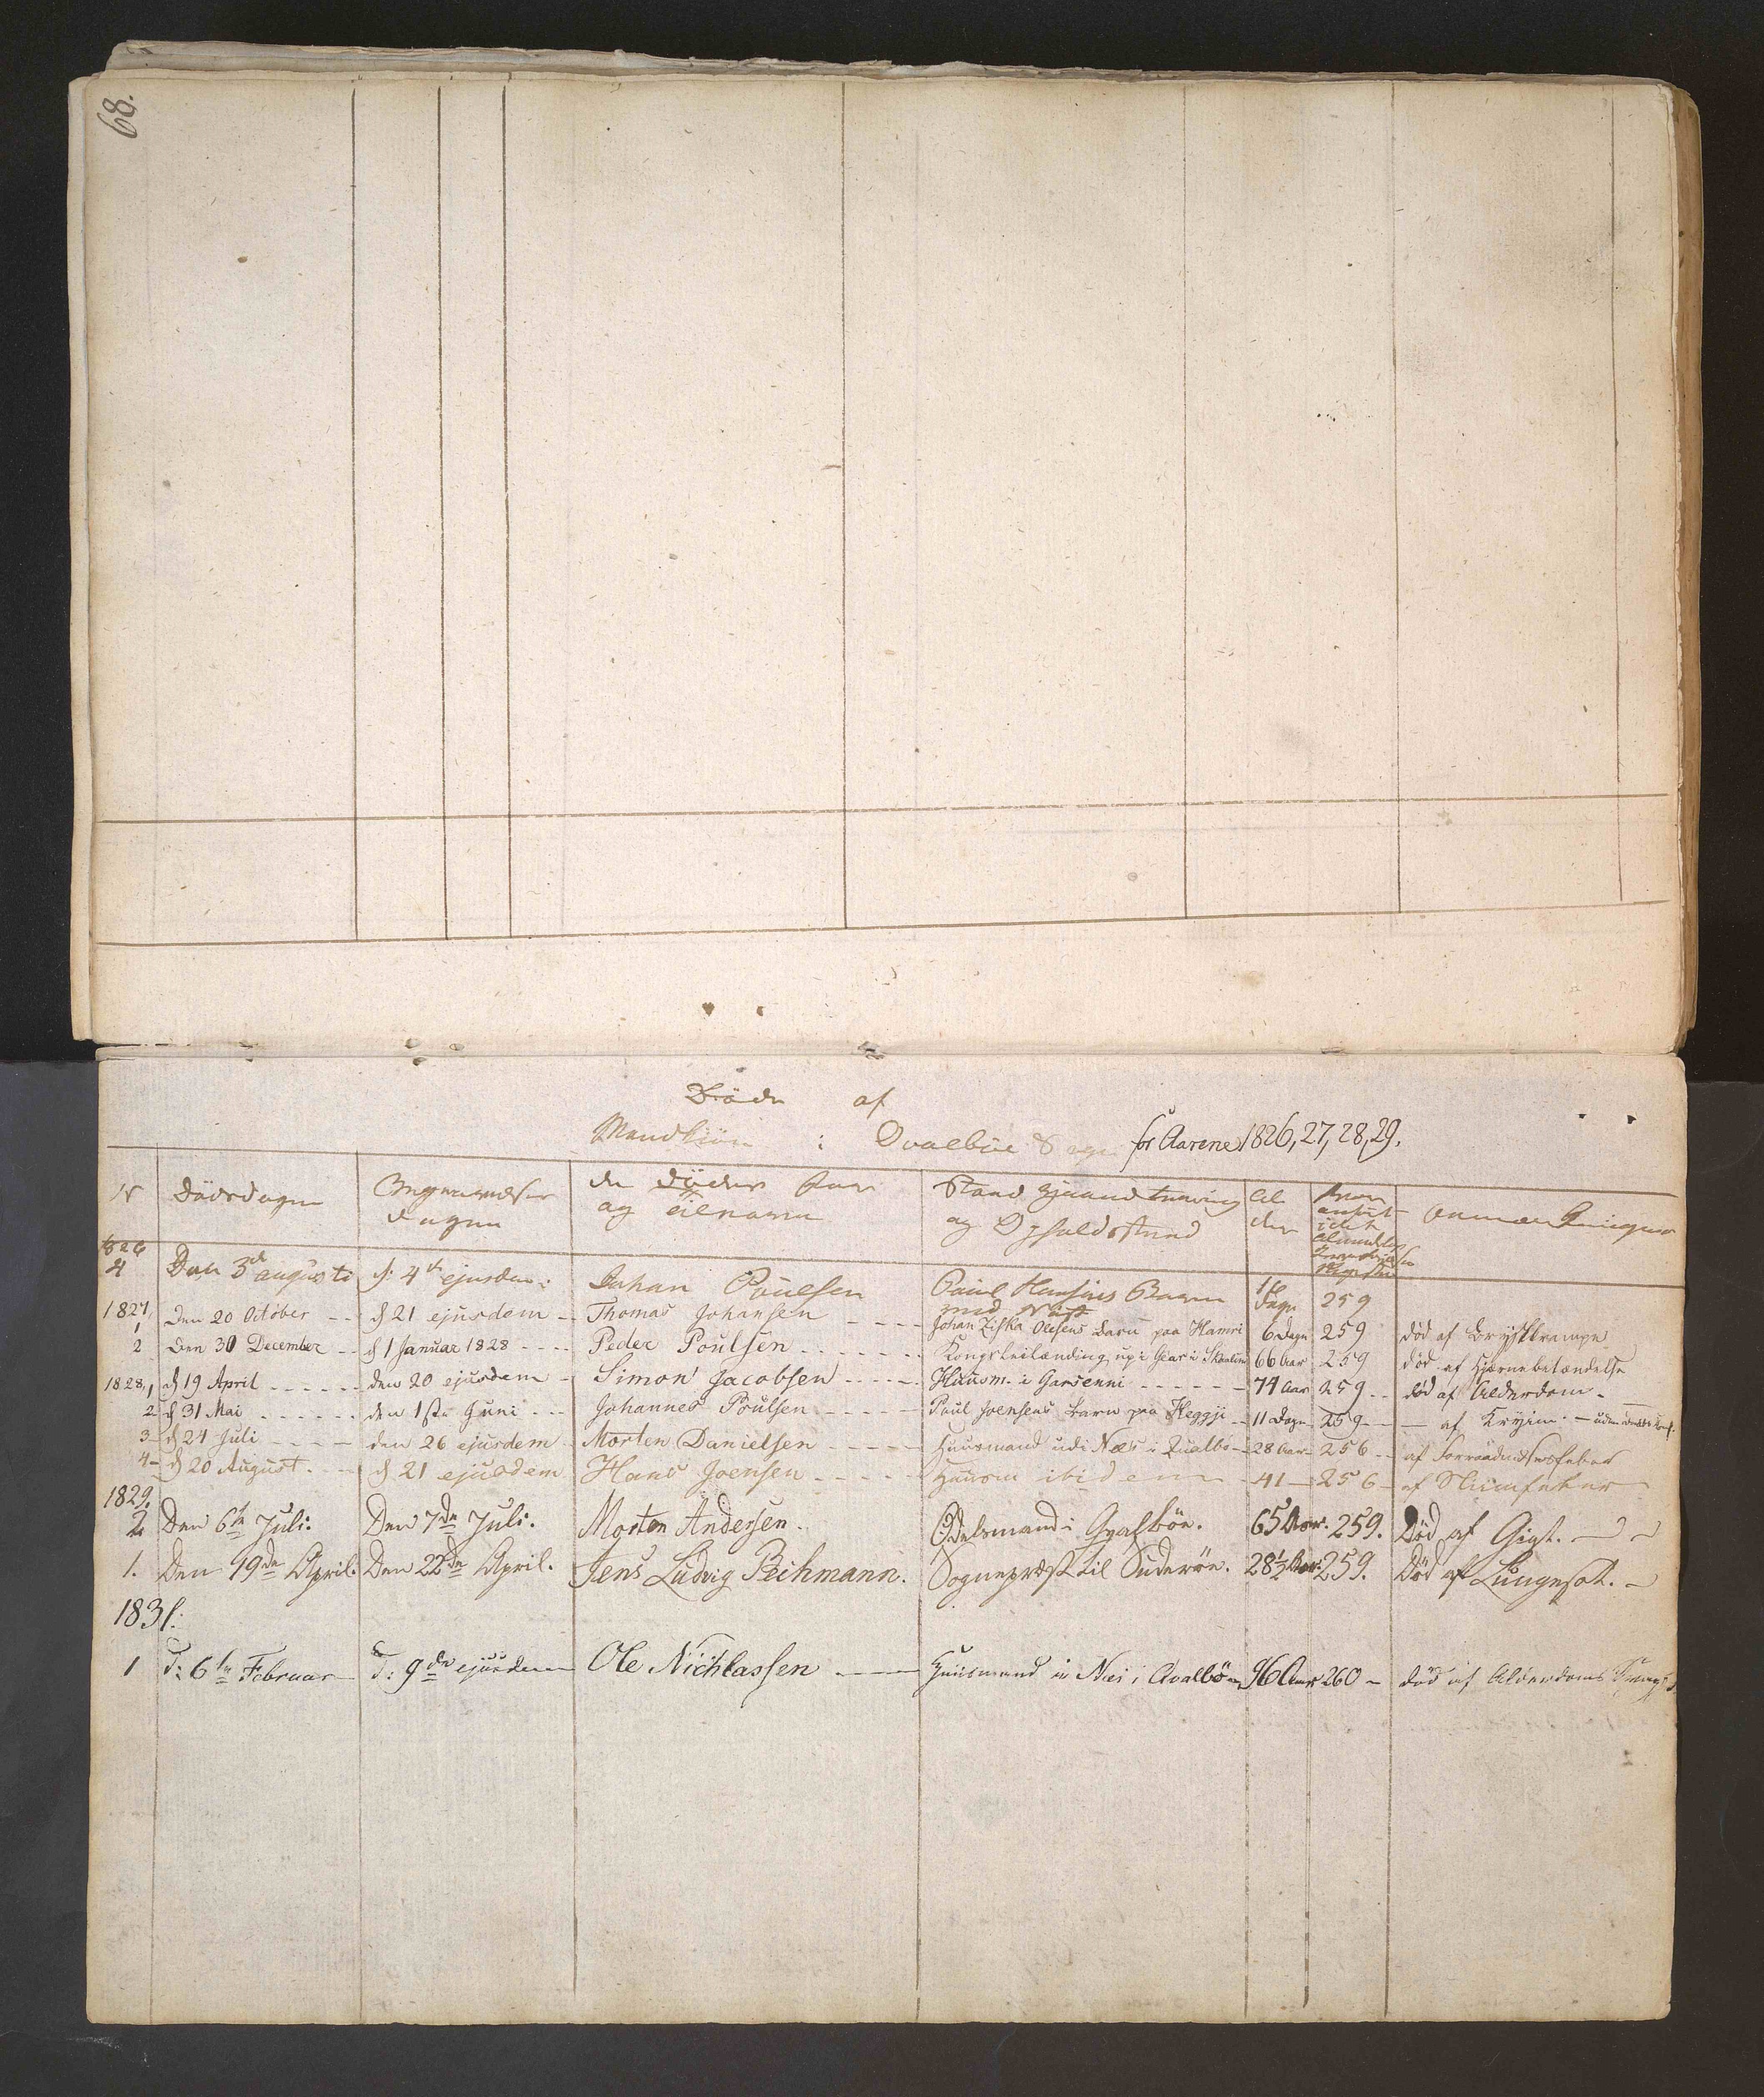 68.
Døde af
Mandkiøn i Qvalböe Sogn for Aarene 1826, 27, 28, 29.
N Dödsdagen Begravelses dagen den dödes For og Tilnavn Stand Haandtæring og Opholdssted Alder hvor anført i det Almindelige Register Anmærkninger
1826
4 Den 3de augusti d: 4de ejusdem Johan Poulsen Paul Hansens Barn Dage 259
1827, 1 Den 20 October d 21 ejusdem Thomas Johansen Johan Ziska Olesens barn paa Hamri 6 Dage 259 død af Brystkrampe
2 Den 30 December d 1 Januar 1828 Peder Poulsen Kongsleilænding up i Giar i 66 Aar 259 død af Hjernebetændelse
1828, 1 d 19 April den 20 ejusdem Simon Jacobsen Huusm. i Garsenni 74 Aar 259 død af Alderdom
2 d 31 Mai den 1ste Juni Johannes Poulsen Paul Joensens barn paa Heggji 11 Dage 259 af
3 d 24 Juli den 26 ejusdem Morten Danielsen Huusmand udi Næs i Qualbö 28 Aar 256 af Forraadnelsesfeber
4 d 20 August d 21 ejusdem Hans Joensen Huusm ibidem 41 256 af Sliimfeber
1829.
2 Den 6te Juli. Den 7de Juli. Morten Andersen. Odelsmand i Qvalböe. 65 Aar. 259. Död af Gigt.
1. Den 19de April. Den 22de April. Jens Ludvig Bechmann. Sognepræst til Suderöe. 28½ Aar 259. Död af Lungesot.
1831.
1 d: 6te Februar d: 9de ejusdem Ole Nichlassen Huusmand i Næs i Qvalbö 96 Aar 260 død af Alderdoms